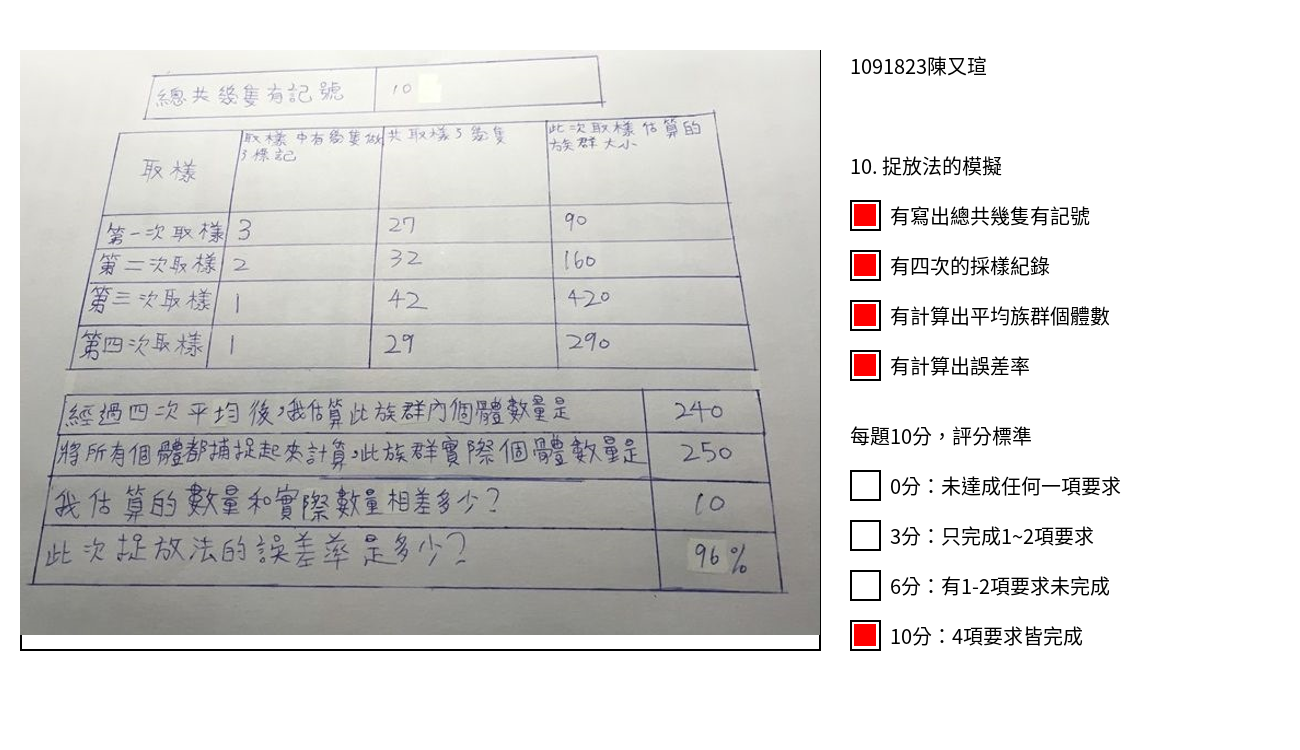 總共幾隻有記號 10
取樣 取樣中有幾隻做了標記 共取樣了幾隻 此次取樣估算的族群大小
第一次取樣 3 27 90
第二次取樣 2 32 160
第三次取樣 1 42 420
第四次取樣 1 29 290
經過四次平均後,我估算此族群內個體數量是 240
將所有個體都捕捉起來計算,此族群實際個體數量是 250
我估算的數量和實際數量相差多少? 10
此次捉放法的誤差率是多少? 96%
1091823陳又瑄
10. 捉放法的模擬
有寫出總共幾隻有記號
有四次的採樣紀錄
有計算出平均族群個體數
有計算出誤差率
每題10分，評分標準
0分：未達成任何一項要求
3分：只完成1~2項要求
6分：有1-2項要求未完成
10分：4項要求皆完成